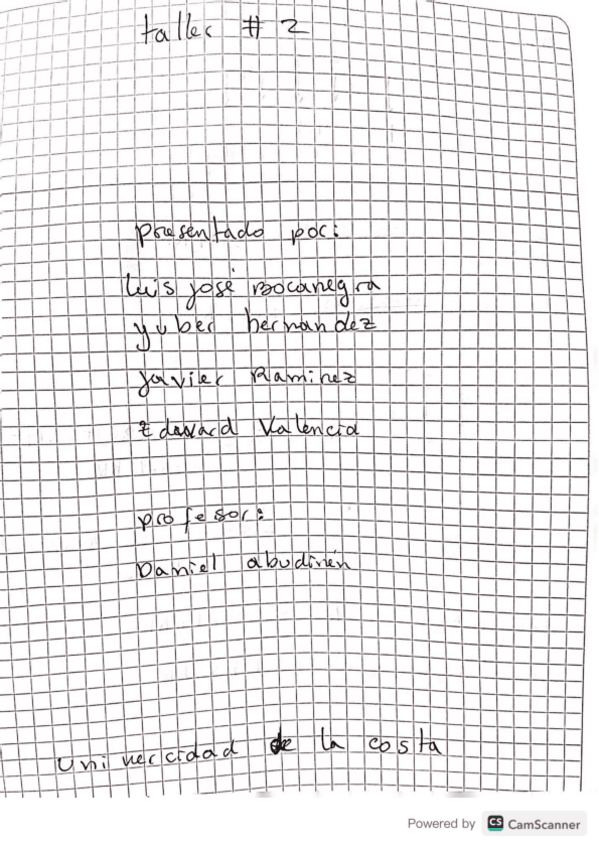 taller # 2
presentado por:
luis josé Bocanegra
yuber hernandez
Javier Ramirez
Edward Valencia
profesor:
Daniel abudinén
Univercidad de la costa
Powered by CS CamScanner